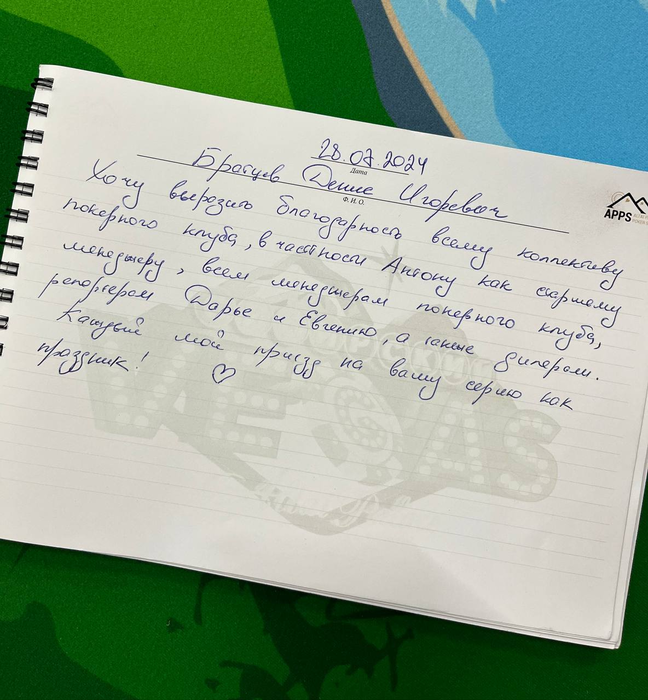 28.07.2024
Дата
Братцев Денис Игоревич
Ф.И.О.
APPS
Хочу выразить благодарность всему коллективу
покерного клуба, в частности Антону как старшему
менеджеру, всем менеджерам покерного клуба,
репортерам Дарье и Евгению, а также дилерам.
Каждый мой приезд на вашу серию как
праздник! ♡
VEGAS